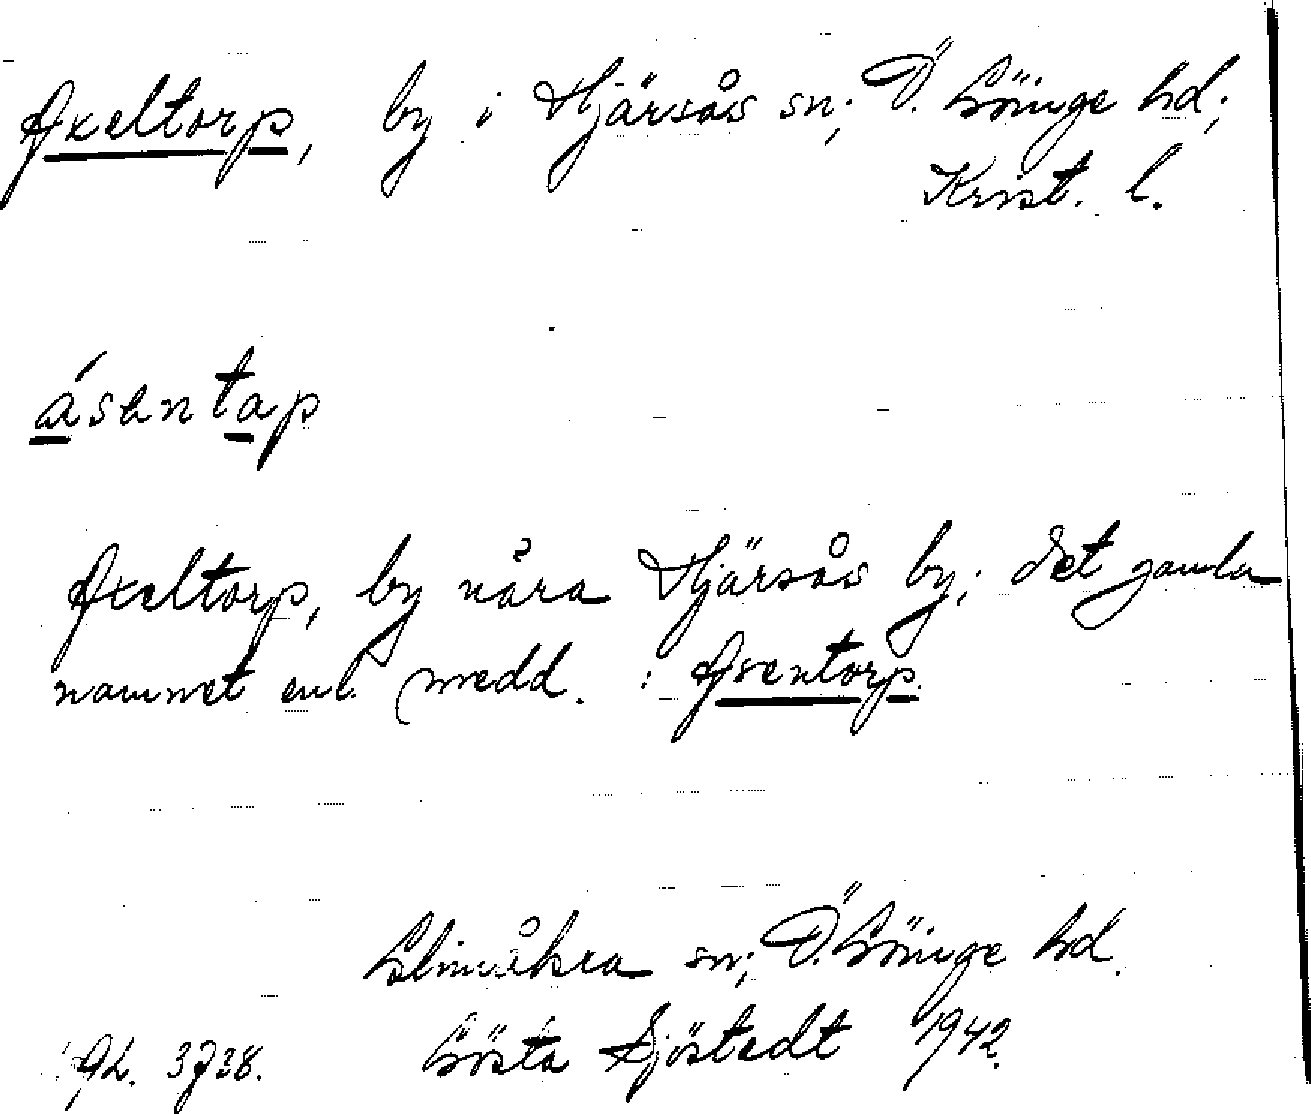 Axeltorp, by i Hjärsås sn; Ö. Göinge hd;
Krist. l.
ásentap
Axeltorp, by nära Hjärsås by; det gamla
namnet enl. medd. : Asentorp.
Glimåkra sn; Ö. Göinge hd.
Gösta Sjöstedt 1942.